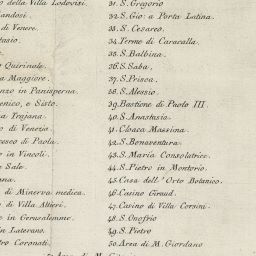 della Villa Lodovisi.
31. S. Gregorio
32. S. Gio: a Porta Latina.
di Venere.
33. S. Cesareo.
34. Terme di Caracalla.
35. S. Balbina.
Quirinale.
36. S. Saba.
Maggiore.
37. S. Prisca.
in Panisperna.
38. S. Alessio.
e Sisto.
39. Bastione di Paolo III.
Trajana.
40. S. Anastasia.
di Venezia.
41. Cloaca Massima.
di Paola.
42. S. Bonaventura.
in Vincoli.
43. S. Maria Consolatrice.
Sale.
44. S. Pietro in Montorio.
45. Casa dell' Orto Botanico.
di Minerva medica.
46. Casino Giraud.
di Villa Altieri.
47. Casino di Villa Corsini.
in Gerusalemme.
48. S. Onofrio
in Laterano.
49. S. Pietro
Coronati.
50. Area di M. Giordano